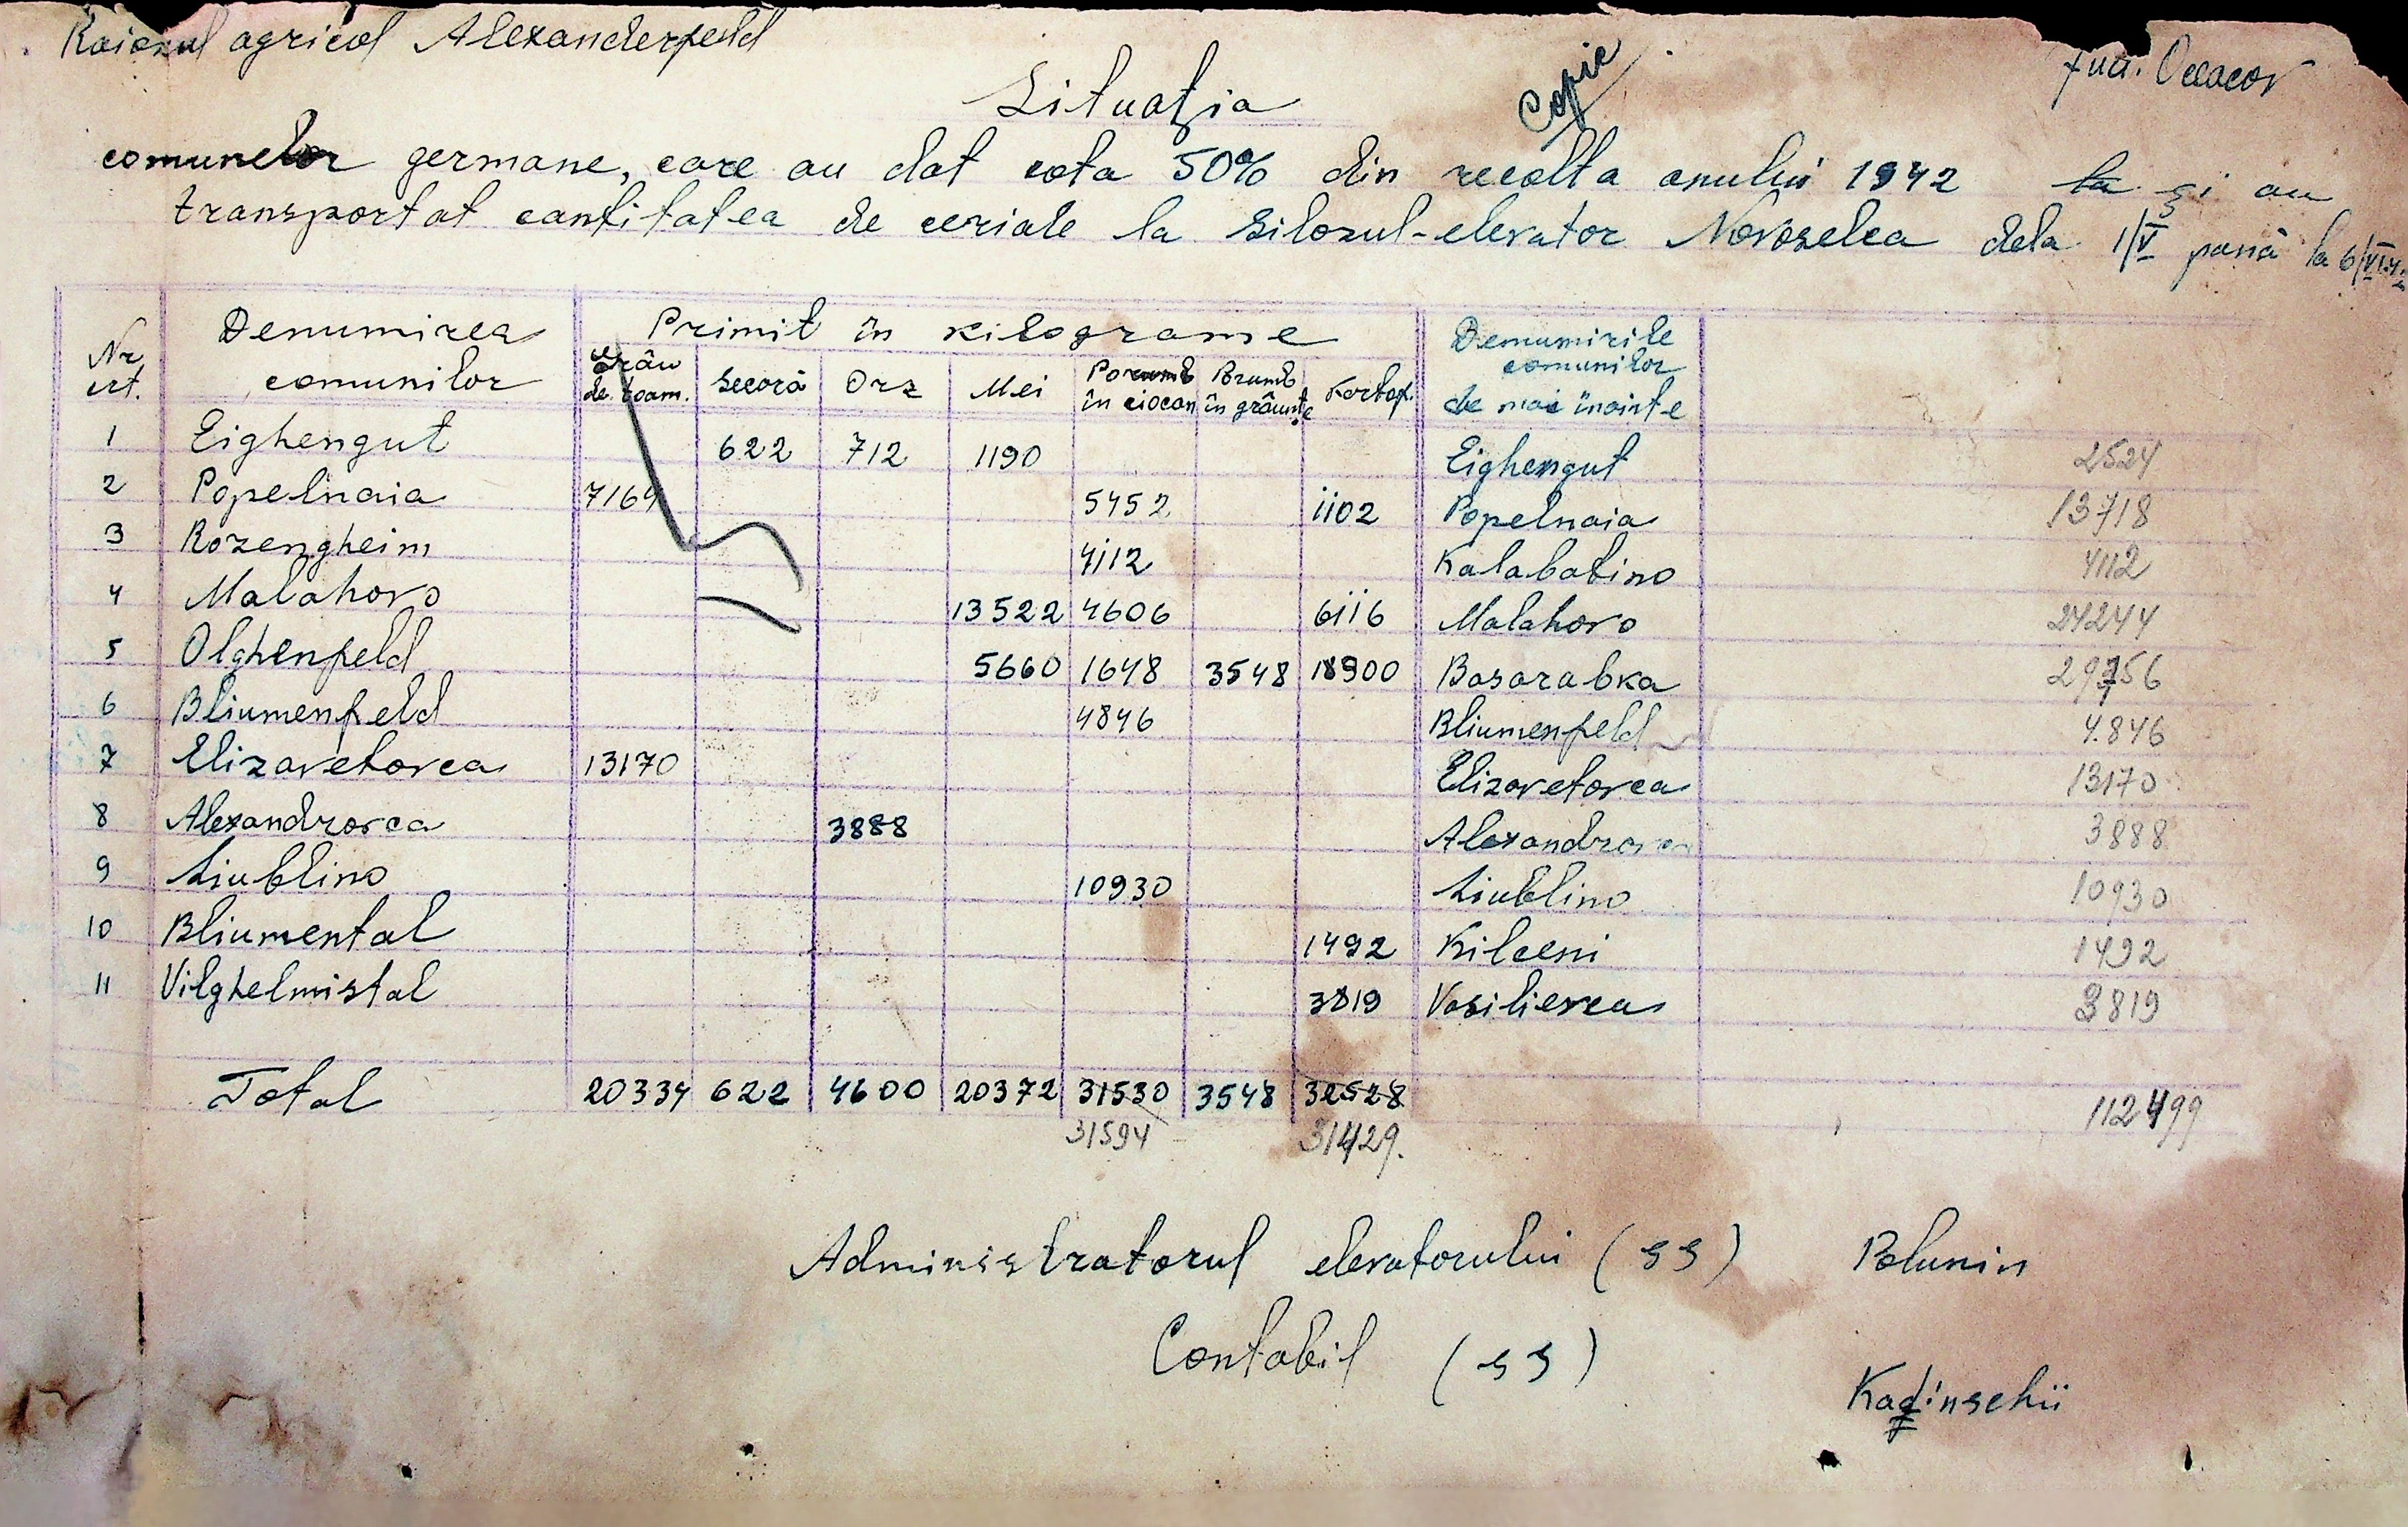 Raionul agricol Alexanderfeld
Jud. Oceacov
Copie
Situaţia
comunelor germane, care au dat cota 50% din recolta anului 1942 la şi au
transportat cantitatea de ceriale la Silozul-elevator Novoselca dela 1/V pană la 6/VI.
Nr. crt. Denumirea comunilor Primit în kilograme Denumirile comunilor de mai înainte
Grâu de toam. Secară Orz Mei Porumb în ciocan Porumb în grăunţe Kartof.
1 Eighengut 622 712 1190 Eighengut 2524
2 Popelnaia 7164 5452 1102 Popelnaia 13718
3 Rozengheim 4112 Kalabatino 4112
4 Malahovo 13522 4606 6116 Malahovo 24244
5 Olghenfeld 5660 1648 3548 18900 Basarabka 29756
6 Bliumenfeld 4846 Bliumenfeld 4.846
7 Elizavetovca 13170 Elizavetovca 13170
8 Alexandrovca 3888 Alexandrovca 3888
9 Liublino 10930 Liublino 10930
10 Bliumental 1492 Kilceni 1492
11 Vilghelmistal 3819 Vasilievca 3819
Total 20334 622 4600 20372 31530 3548 32528 112499
31594 31429.
Administratorul elevatorului (ss) Polunin
Contabil (ss)